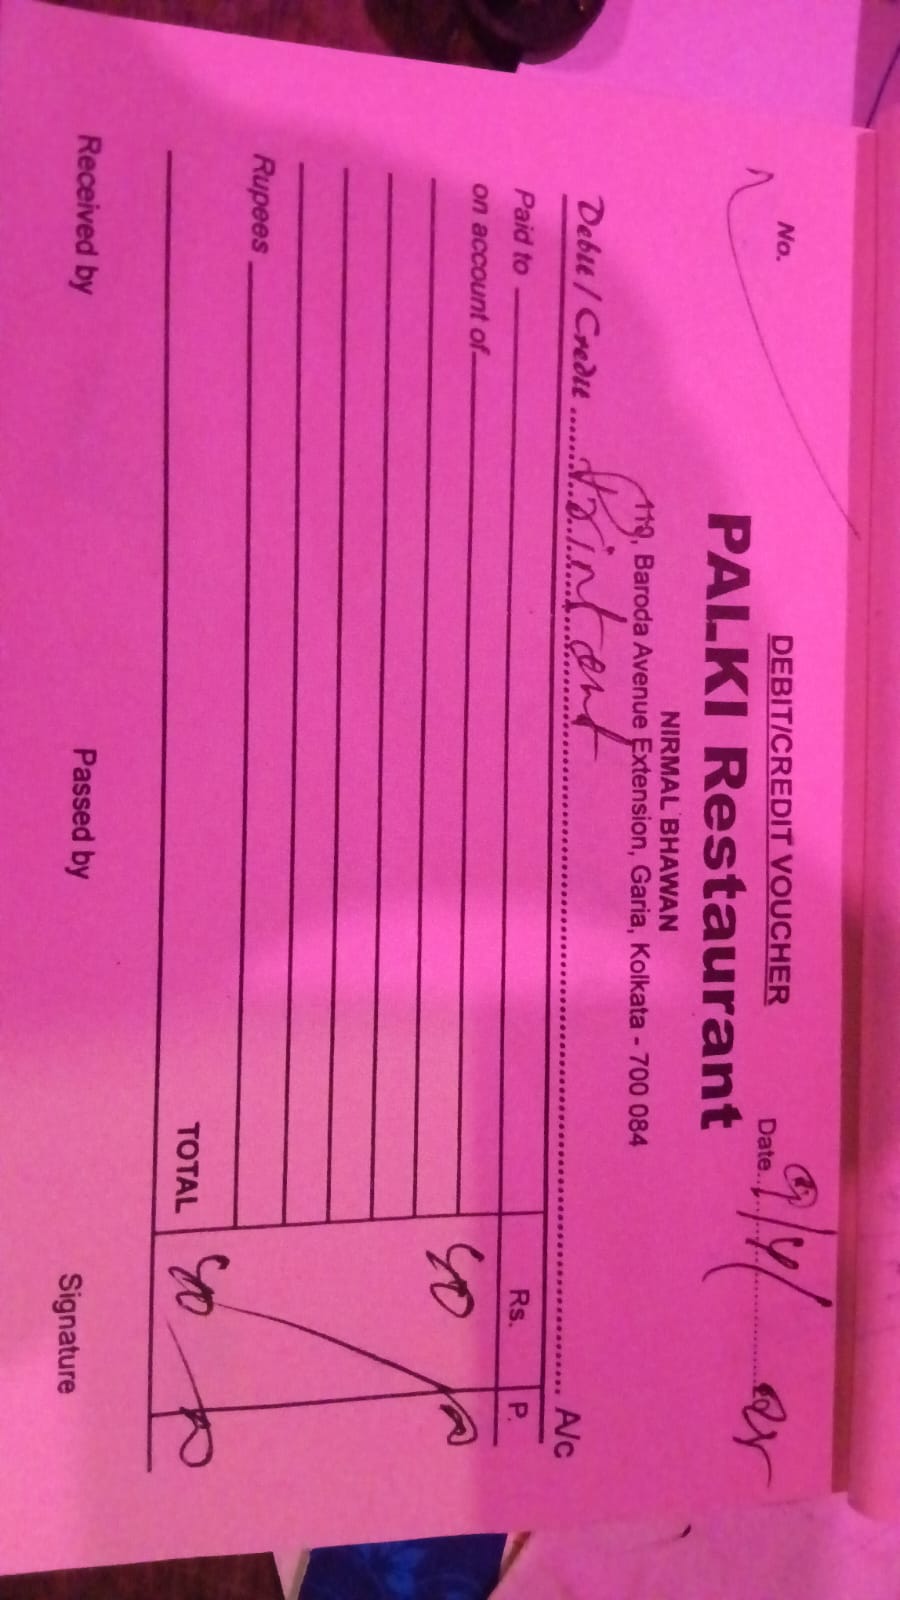 DEBIT/CREDIT VOUCHER
No.
Date
PALKI Restaurant
NIRMAL BHAWAN
119, Baroda Avenue Extension, Garia, Kolkata - 700 084
Debit / Credit A/c
Paid to Rs. P.
on account of
Rupees
TOTAL
Received by Passed by Signature